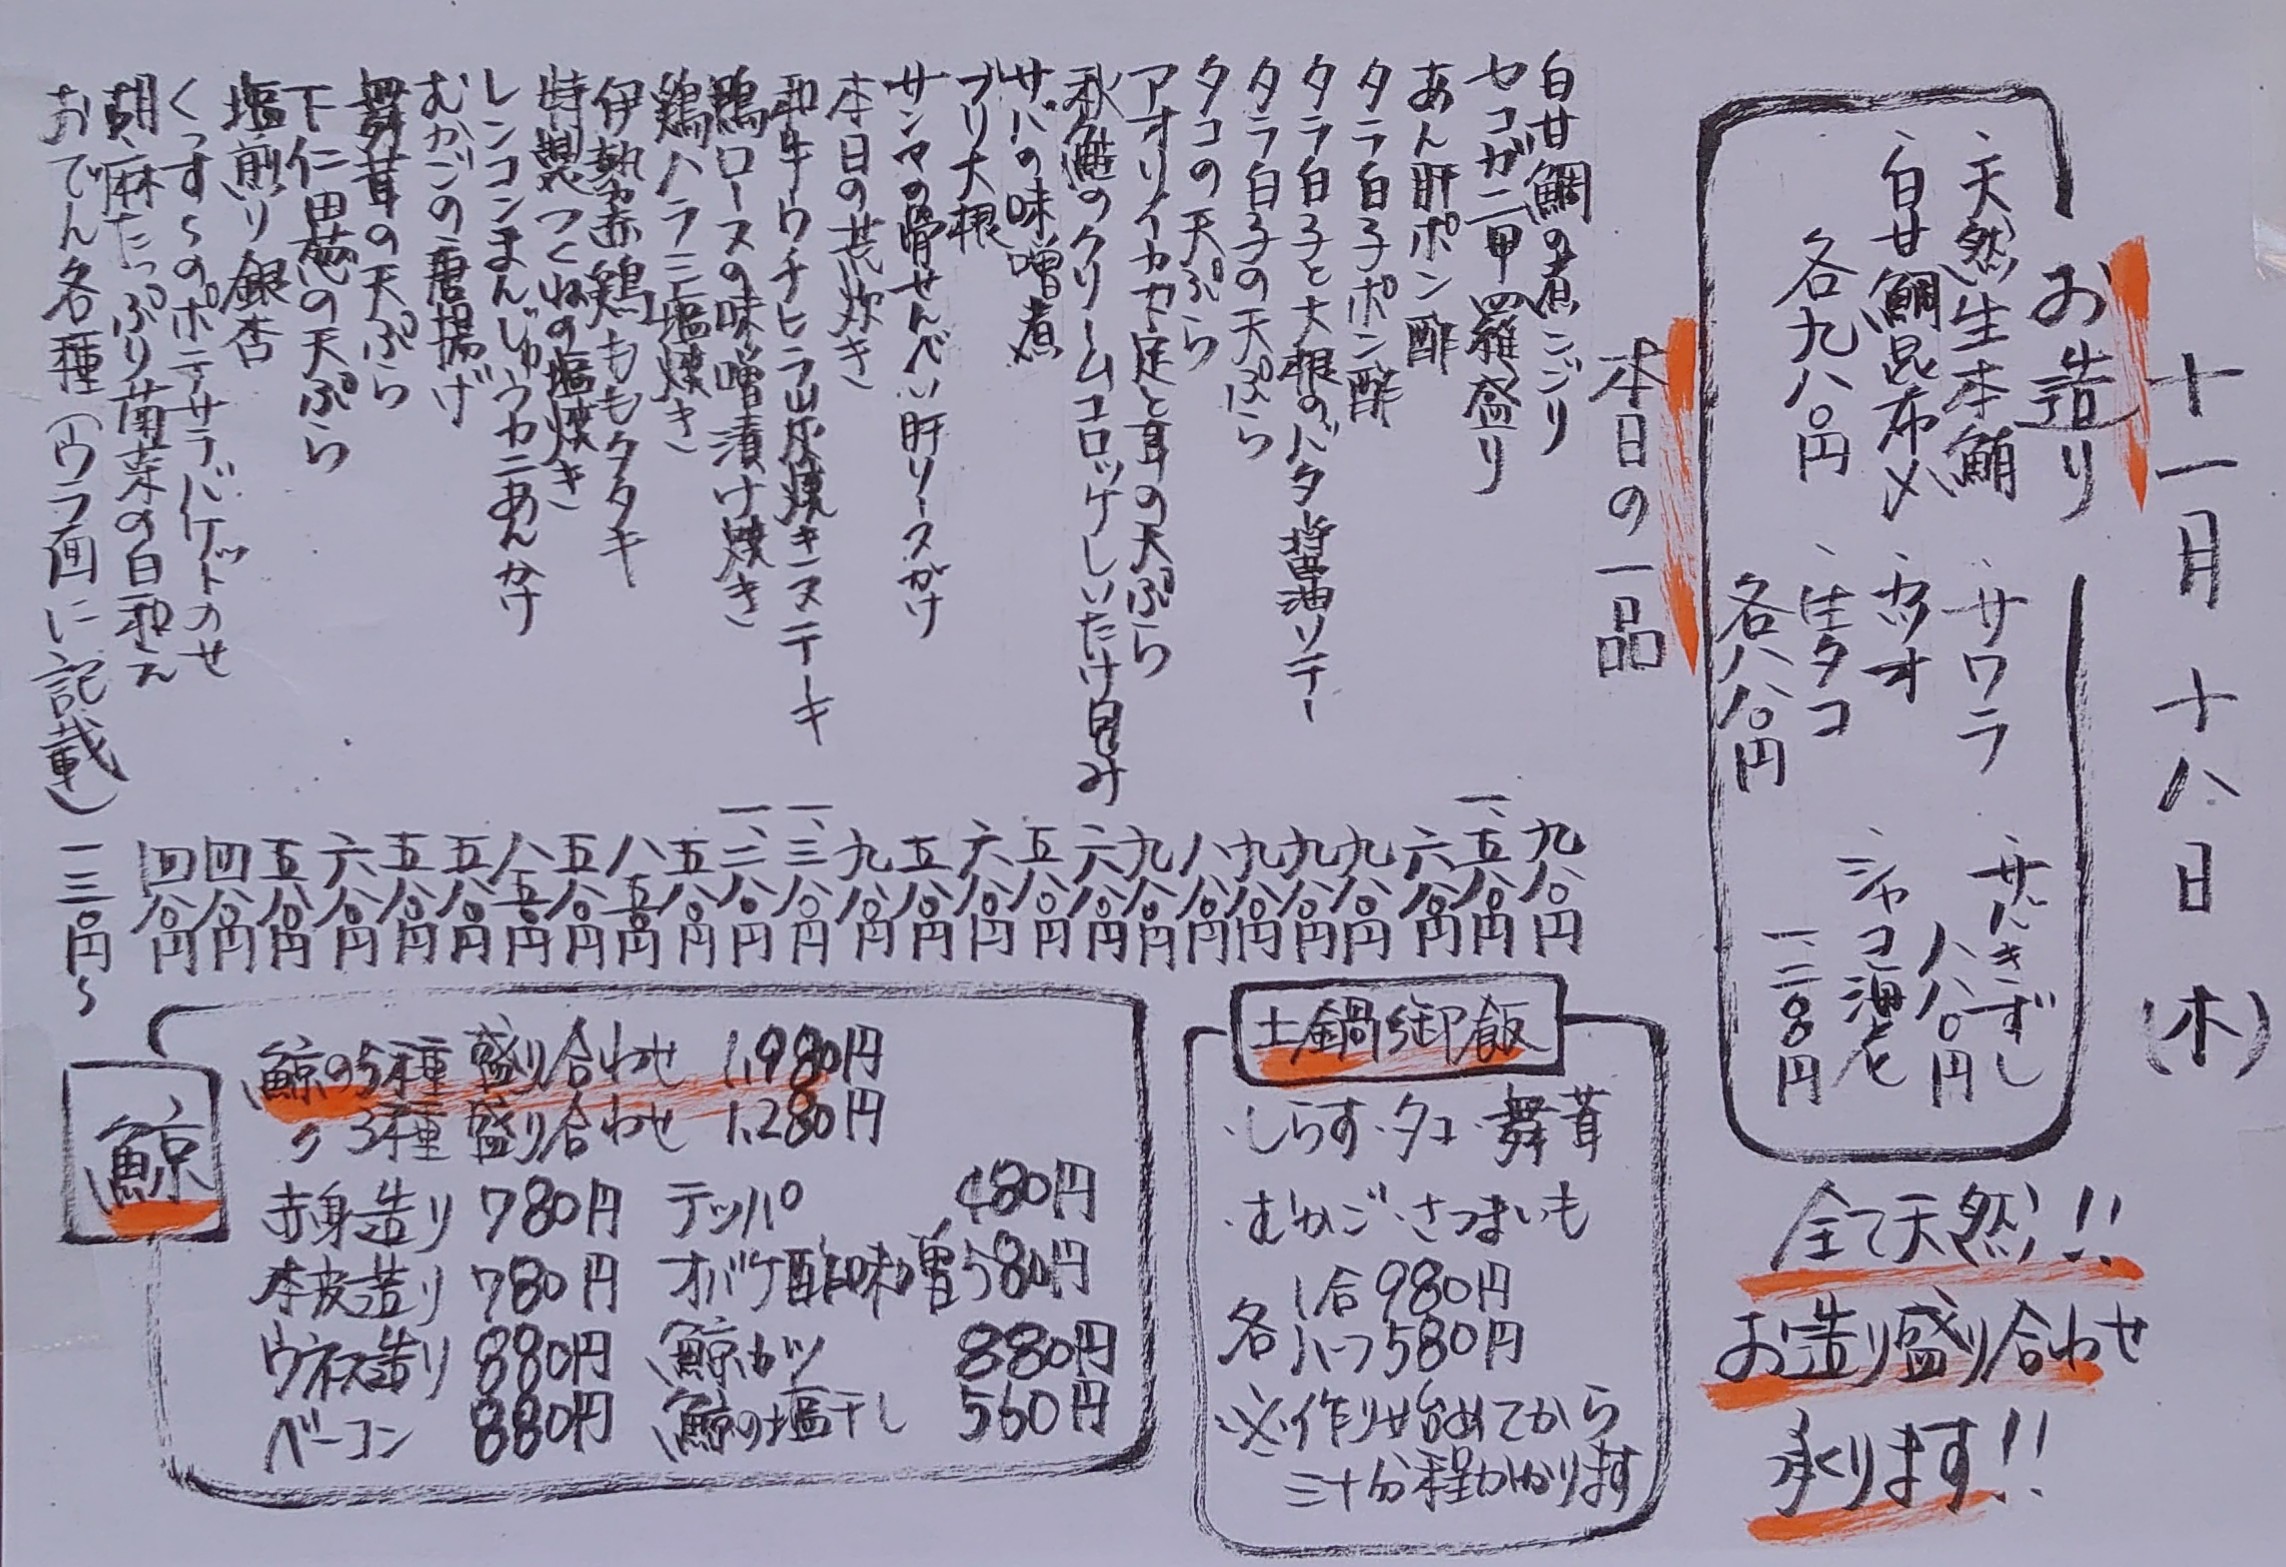 十一月十八日(木)
お造り
・天然生本鮪
・白甘鯛昆布〆
各九八〇円
・サワラ
・カツオ
・生タコ
各八八〇円
・サバきずし
八八〇円
・シャコ酒盗
一、二〇〇円
全て天然!!
お造り盛り合わせ
承ります!!
本日の一品
白甘鯛の煮こごり 九八〇円
セコガニ甲羅盛り 一、五八〇円
あん肝ポン酢 六八〇円
タラ白子ポン酢 九八〇円
タラ白子と大根のバタ醤油ソテー 九八〇円
タラ白子の天ぷら 九八〇円
タコの天ぷら 八八〇円
アオリイカ足と耳の天ぷら 九八〇円
秋鮭のクリームコロッケしいたけ包み 六八〇円
サバの味噌煮 五八〇円
ブリ大根 六八〇円
サンマの骨せんべい肝ソースがけ 五八〇円
本日の荒炊き 九八〇円
和牛ウチヒラ山椒焼きステーキ 一、三八〇円
鴨ロースの味噌漬け焼き 一、二八〇円
鶏ハラミ塩焼き 五八〇円
伊勢赤鶏ももタタキ 八五〇円
特製つくねの塩焼き 五八〇円
レンコンまんじゅうカニあんかけ 八五〇円
むかごの唐揚げ 五八〇円
舞茸の天ぷら 五八〇円
下仁田葱の天ぷら 六八〇円
塩煎り銀杏 五八〇円
くっす〜のポテサラバケットのせ 四八〇円
胡麻たっぷり菊菜の白和え 四八〇円
おでん各種(ウラ面に記載) 一三〇円〜
土鍋御飯
・しらす・タコ・舞茸
・むかご・さつまいも
各 1合980円
ハーフ580円
※作り始めてから
三十分程かかります
鯨
鯨の5種盛り合わせ 1,980円
〃 3種盛り合わせ 1,280円
赤身造り 780円 テッパ 480円
本皮造り 780円 オバケ酢味噌 580円
ウネス造り 880円 鯨カツ 880円
ベーコン 880円 鯨の塩干し 560円